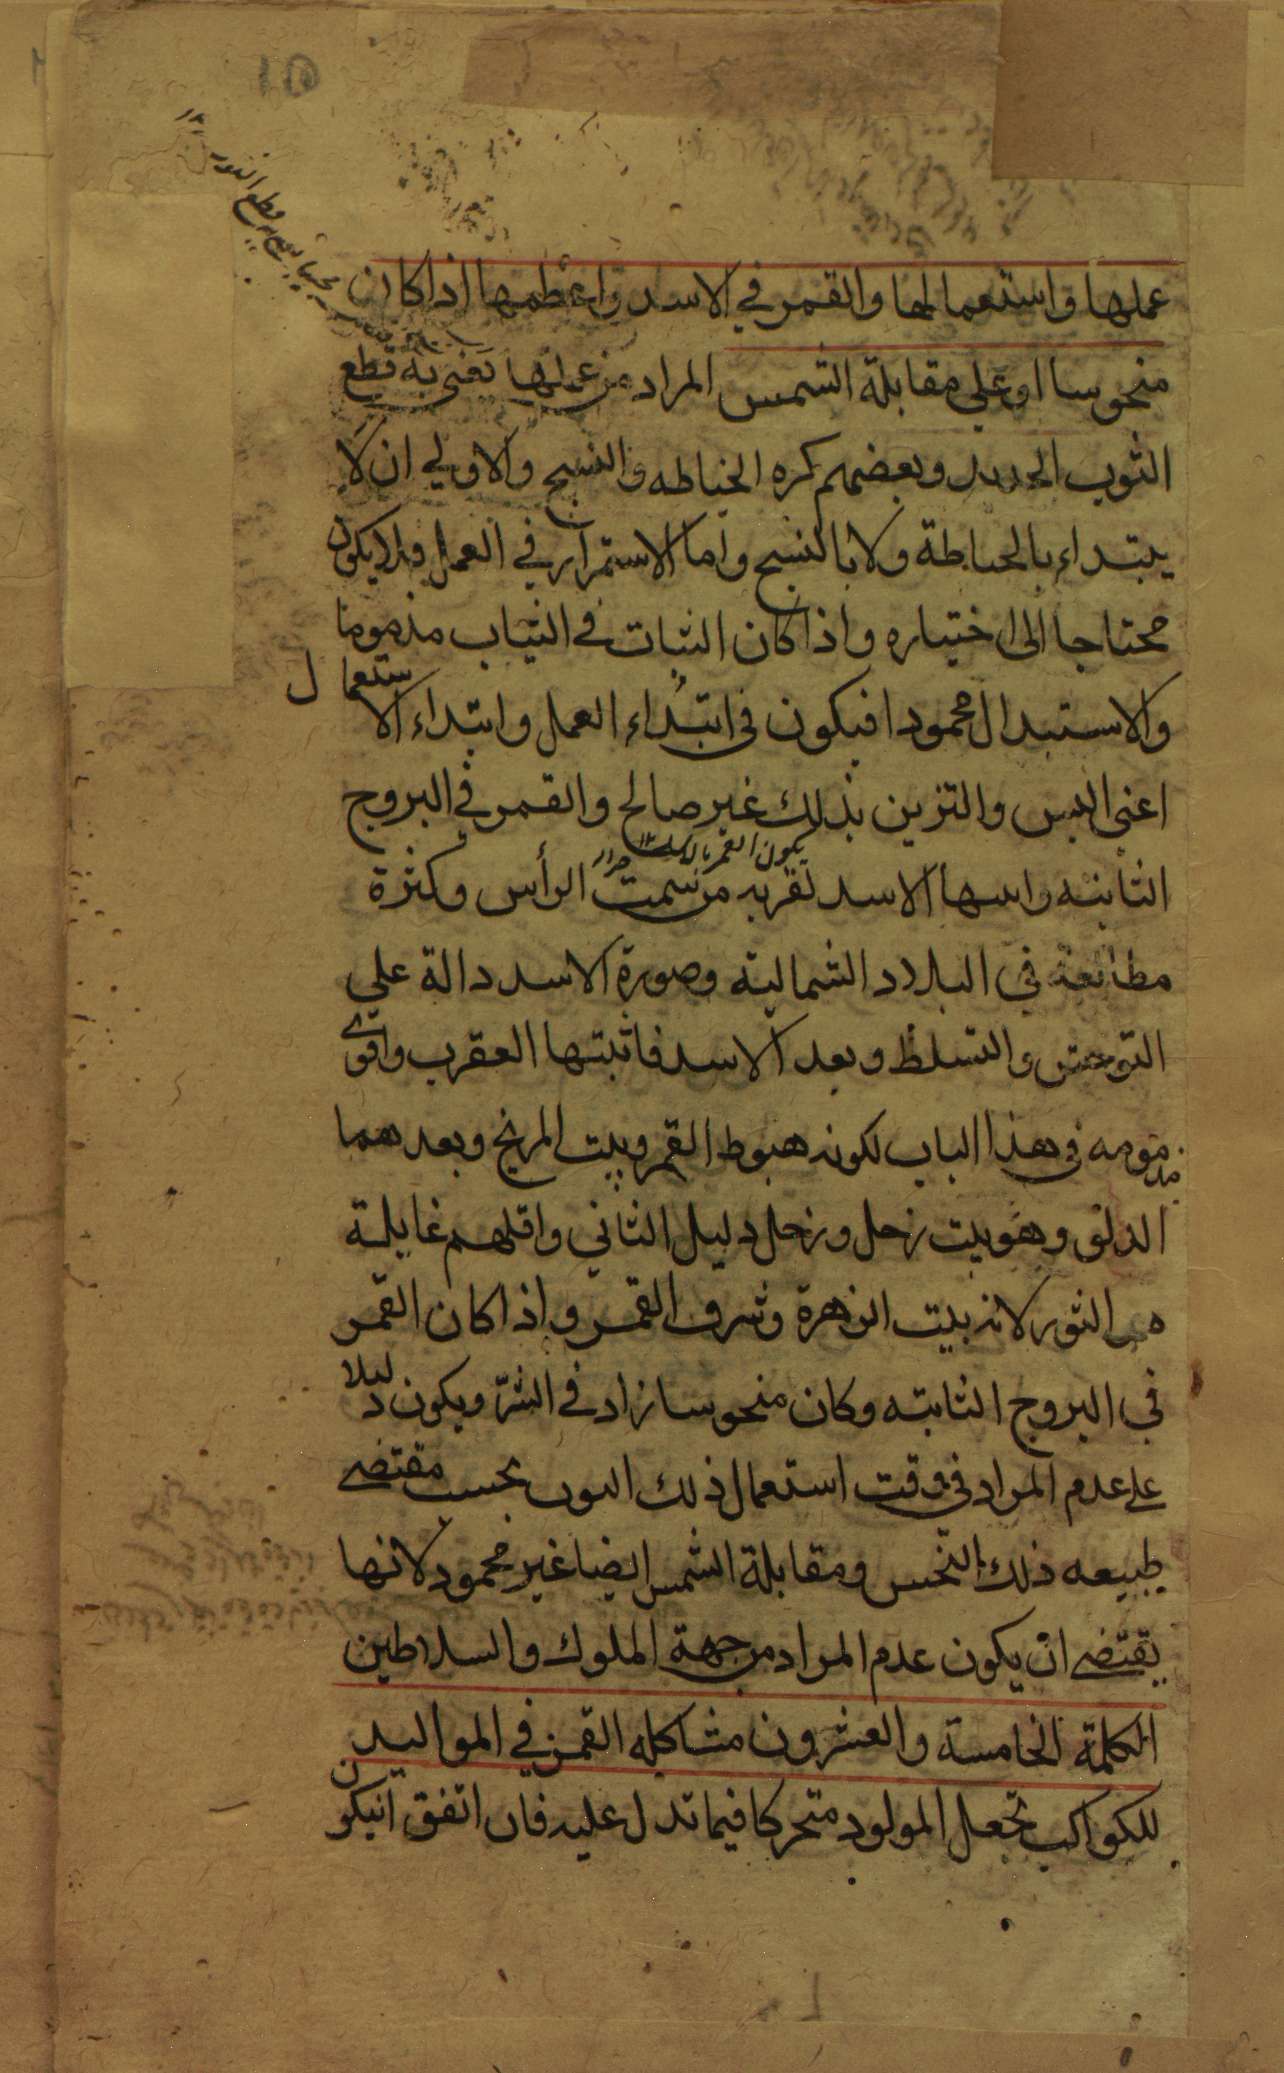 عملها واستعمالها والقمر في الاسد واعظمها اذا كان
منحوسا او على مقابلة الشمس المراد من عملها يعني به قطع
الثوب الجديد وبعضهم كره الخياطه والنسج والاولي ان لا
يبتداء بالخياطة ولا بالنسج واما الاستمرار في العمل فلا يكون
محتاجا الى اختياره واذا كان الثبات في الثياب مذموما
والاستبدال محمودا فيكون في ابتداء العمل وابتداء الاستعمال
اعنى اللبس والتزين بذلك غير صالح والقمر في البروج
يكون القمر
الثابته واسها الاسد لقربه من سمت الرأس وكثرة
مطالعة في البلاد الشمالية وصورة الاسد دالة علي
التوحش والتسلط وبعد الاسد فاثبتها العقرب واقوى
مذمومه في هذا الباب لكونه هبوط القمر وبيت المريخ وبعدهما
الدلو وهو بيت زحل وزحل دليل الثاني واقلهم غايلة
هي الثور لانه بيت الزهرة وشرف القمر واذا كان القمر
في البروج الثابته وكان منحوسا زاد في الشرّ ويكون دليلا
على عدم المراد في وقت استعمال ذلك الثوب بحسب مقتضى
طبيعه ذلك النحس ومقابلة الشمس ايضا غير محمود لانها
يقتضى ان يكون عدم المراد من جهة الملوك والسلاطين
الكلمة الخامسة والعشرون مشاكله القمر في المواليد
للكواكب تجعل المولود متحركا فيما تدل عليه فان اتفق ان يكون